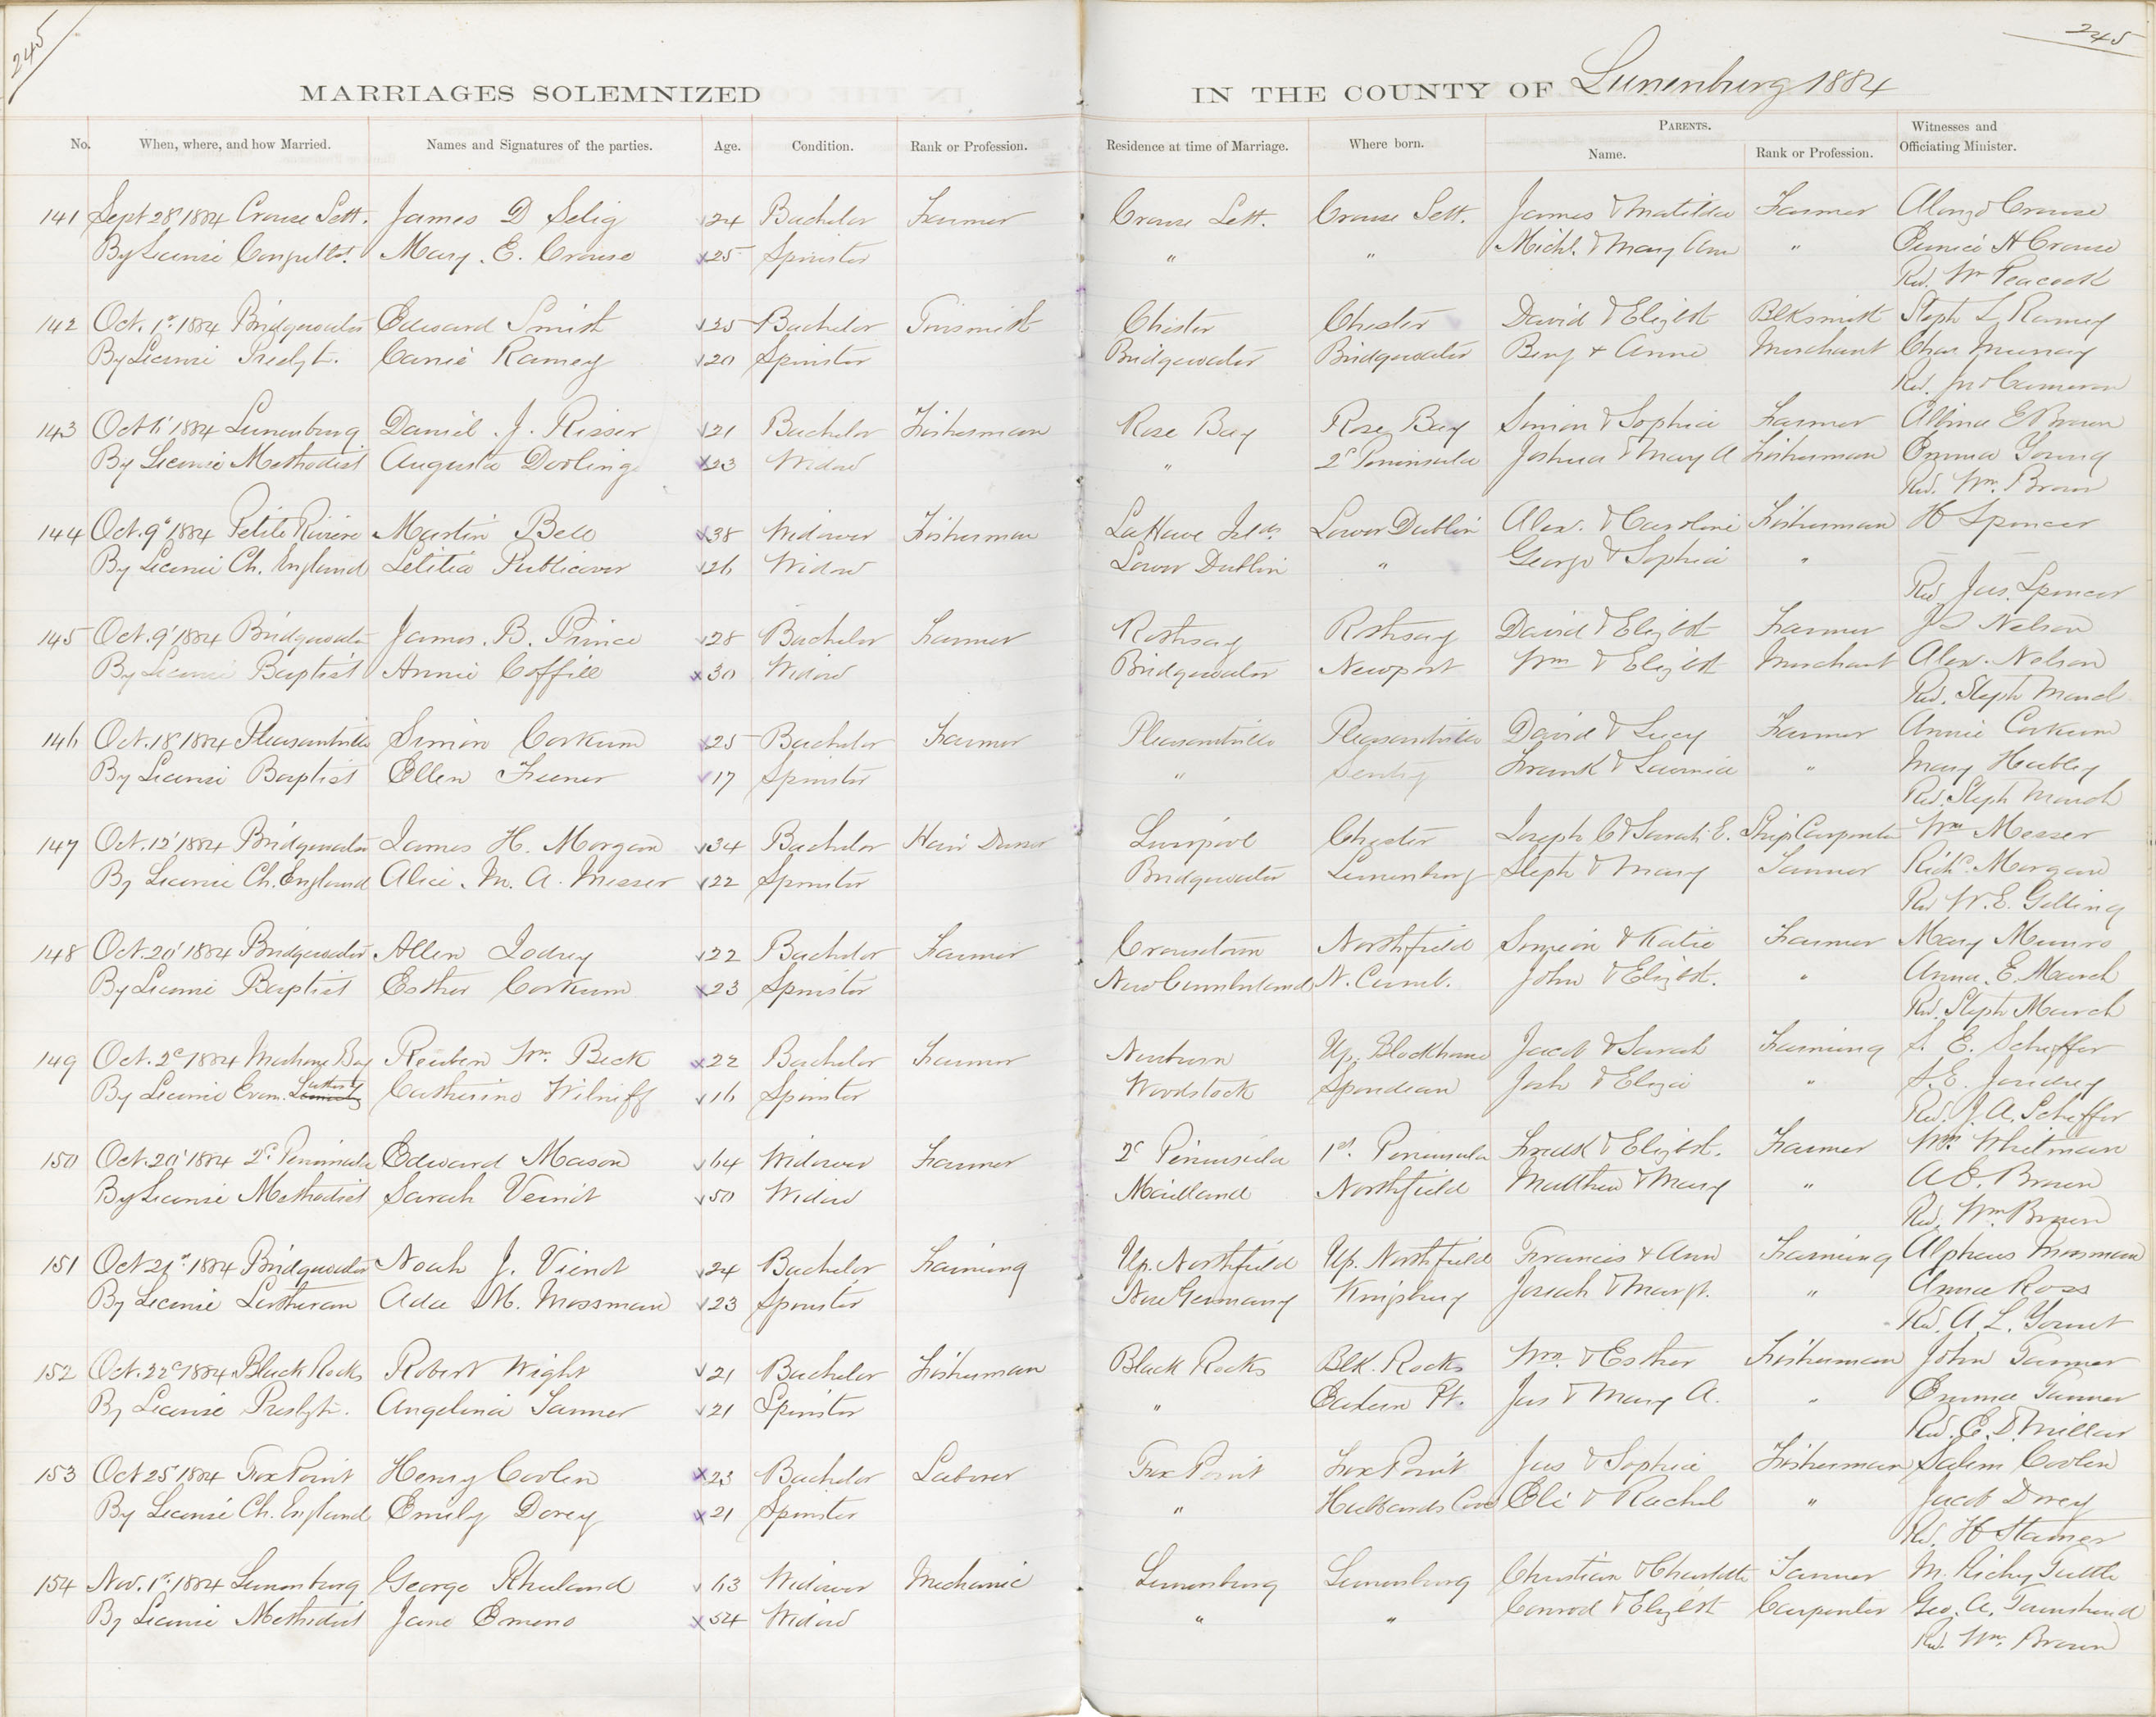 245
245
MARRIAGES SOLEMNIZED IN THE COUNTY OF Lunenburg 1884
No. When, where, and how Married. Names and Signatures of the parties. Age. Condition. Rank or Profession. Residence at time of Marriage. Where born. PARENTS. Name. Rank or Profession. Witnesses and Officiating Minister.
141 Sept 28' 1884 Crouse Sett. James D Selig 24 Bachelor Farmer Crouse Sett. Crouse Sett. James & Matilda Farmer Alonzo Crouse
By License Mary. E. Crouse 25 Spinster " " Michl. & Mary Ann " Eunice H Crouse
Rev. Wm Peacock
142 Oct. 1st 1884 Bridgewater Edward Smith 25 Bachelor Tinsmith Chester Chester David & Elizbt Blksmith Steph L Ramey
By License Presbyt. Canie Ramey 20 Spinster Bridgewater Bridgewater Benj + Anne Merchant Chas Murray
Rev. Jno Cameron
143 Oct 6' 1884 Lunenburg Daniel. J. Risser 21 Bachelor Fisherman Rose Bay Rose Bay Simion & Sophia Farmer Albina E Brown
By License Methodist Augusta Dorling 23 Widow " 2d Peninsula Joshua & Mary A Fisherman Emma Young
Rev. Wm. Brown
144 Oct. 9' 1884 Petite Riviere Martin Bell 38 Widower Fisherman LaHave Ilds. Lower Dublin Alex. & Caroline Fisherman H Spencer
By License Ch. England Letitia Publicover 26 Widow Lower Dublin " George & Sophia "
Rev Jas. Spencer
145 Oct. 9' 1884 Bridgewater James. B. Prince 28 Bachelor Farmer Rothsay Rothsay David & Elizbt Farmer Nelson
By License Baptist Annie Coffill 30 Widow Bridgewater Newport Wm & Elizbt Merchant Alex. Nelson
Rev. Steph March
146 Oct. 18' 1884 Pleasantville Simion Corkum 25 Bachelor Farmer Pleasantville Pleasantville David & Lucy Farmer Annie Corkum
By License Baptist Ellen Feener 17 Spinster " Frank & Lavinia " Mary Hebley
Rev. Steph March
147 Oct. 12' 1884 Bridgewater James H. Morgan 34 Bachelor Hair Dresser Liverpool Chester Joseph C & Sarah E. Ship Carpenter Wm Messer
By License Ch. England Alice. M. A. Messer 22 Spinster Bridgewater Lunenburg Steph & Mary Tanner Richd. Morgan
Rev W. E. Gelling
148 Oct. 20' 1884 Bridgewater Allen Jodrey 22 Bachelor Farmer Crousetown Northfield Simeon & Katie Farmer Mary Munro
By License Baptist Esther Corkum 23 Spinster New Cumberland N. Cumb. John & Elizbt. " Anna. E. March
Rev. Steph March
149 Oct. 2d 1884 Mahone Bay Reuben Wm. Beck 22 Bachelor Farmer Newburn Up. Blockhouse Jacob & Sarah Farming S. E. Scheffer
By License Evan. Luthern Catherine Wilniff 16 Spinster Woodstock Josh & Eliza " S. E. Joudrey
Rev. J. A. Scheffer
150 Oct. 20' 1884 2d. Peninsula Edward Mason 64 Widower Farmer 2d Peninsula 1st. Peninsula Fredk & Elizbt. Farmer Wm. Whitman
By License Methodist Sarah Veinot 50 Widow Maitland Northfield Matthew & Mary " A E. Brown
Rev. Wm. Brown
151 Oct 21st 1884 Bridgewater Noah J. Vienot 24 Bachelor Farming Up. Northfield Up. Northfield Francis + Ann Farming Alpheus Mossman
By License Lutheran Ada M. Mossman 23 Spinster New Germany Kingsburg Josiah & Margt. " Anna Ross
Rev. A. L. Yount
152 Oct. 22d 1884 Black Rocks Robert Wight 21 Bachelor Fisherman Black Rocks Blk. Rocks Wm. & Esther Fisherman John Tanner
By License Presbyt. Angelina Tanner 21 Spinster " Eastern Pt. Jas & Mary A. " Emma Tanner
Rev. E. D. Millar
153 Oct 25' 1884 Fox Point Henry Coolen 23 Bachelor Laborer Fox Point Fox Point Jas & Sophia Fisherman Salem Coolen
By License Ch. England Emily Dorey 21 Spinster " Hubbards Cove Eli & Rachel " Jacob Dorey
Rev. H Stamer
154 Nov. 1st. 1884 Lunenburg George Rhuland 63 Widower Mechanic Lunenburg Lunenburg Christian & Charlotte Tanner M. Richey Tuttle
By License Methodist Jane Emeno 54 Widow " " Conrod & Elizbt Carpenter Geo. A. Townshend
Rev. Wm. Brown